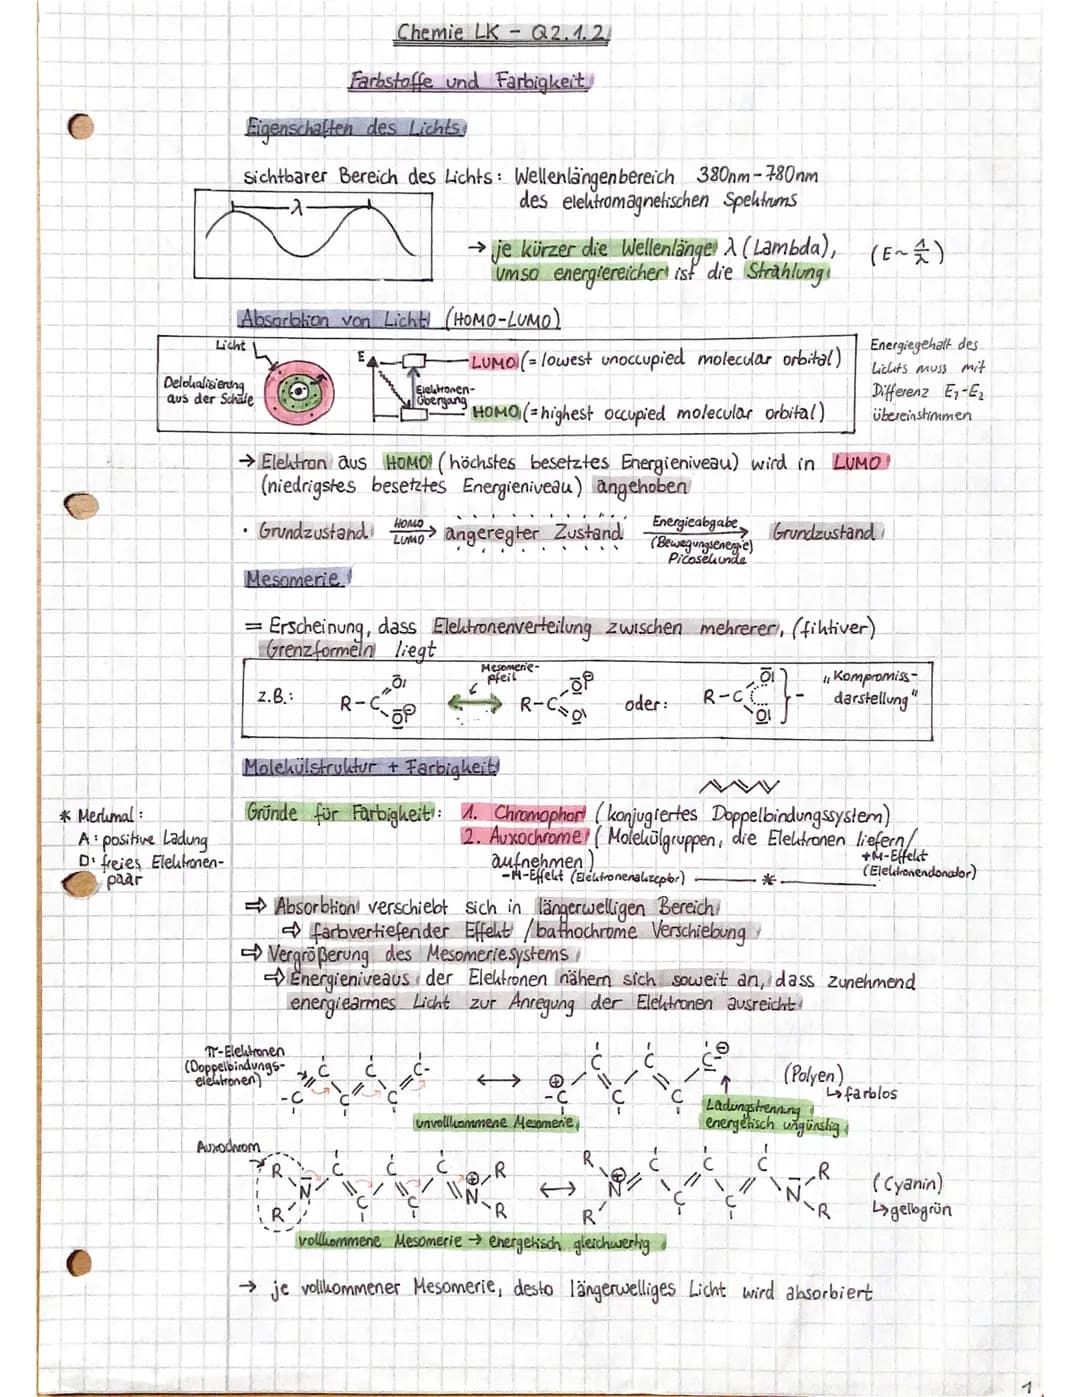 Chemie LK - Q2.1.2
Farbstoffe und Farbigkeit
Eigenschaften des Lichts
sichtbarer Bereich des Lichts: Wellenlängenbereich 380nm-780nm
des elektromagnetischen Spektrums
λ
→ je kürzer die Wellenlänge λ (Lambda), (E~1/λ)
umso energiereicher ist die Strahlung
Absorbtion von Licht (HOMO-LUMO)
Licht
Delokalisierung
aus der Schale
E
Elektronen-
übergang
LUMO (= lowest unoccupied molecular orbital)
HOMO (= highest occupied molecular orbital)
Energiegehalt des
Lichts muss mit
Differenz E₁-E₂
übereinstimmen
→ Elektron aus HOMO (höchstes besetztes Energieniveau) wird in LUMO
(niedrigstes besetztes Energieniveau) angehoben
· Grundzustand HOMO LUMO → angeregter Zustand Energieabgabe (Bewegungsenergie) Picosekunde → Grundzustand
Mesomerie
= Erscheinung, dass Elektronenverteilung zwischen mehrerer, (fiktiver)
Grenzformeln liegt
z.B.:
Mesomerie-
pfeil
oder:
„Kompromiss-
darstellung"
Molekülstruktur + Farbigkeit
* Merkmal:
A: positive Ladung
D: freies Elektronen-
paar
Gründe für Farbigkeit: 1. Chromophor (konjugiertes Doppelbindungssystem)
2. Auxochrome (Molekülgruppen, die Elektronen liefern/
aufnehmen)
+M-Effekt
(Elektronendonator)
-M-Effekt (Elektronenakzeptor) *
⇒ Absorbtion verschiebt sich in längerwelligen Bereich
⇒ farbvertiefender Effekt /bathochrome Verschiebung
⇒ Vergrößerung des Mesomeriesystems
⇒ Energieniveaus der Elektronen nähern sich soweit an, dass zunehmend
energiearmes Licht zur Anregung der Elektronen ausreicht
π-Elektronen
(Doppelbindungs-
elektronen)
(Polyen)
↳ farblos
unvollkommene Mesomerie
Ladungstrennung
energetisch ungünstig
Auxochrom
(Cyanin)
↳ gelbgrün
vollkommene Mesomerie → energetisch gleichwertig
→ je vollkommener Mesomerie, desto längerwelliges Licht wird absorbiert
1